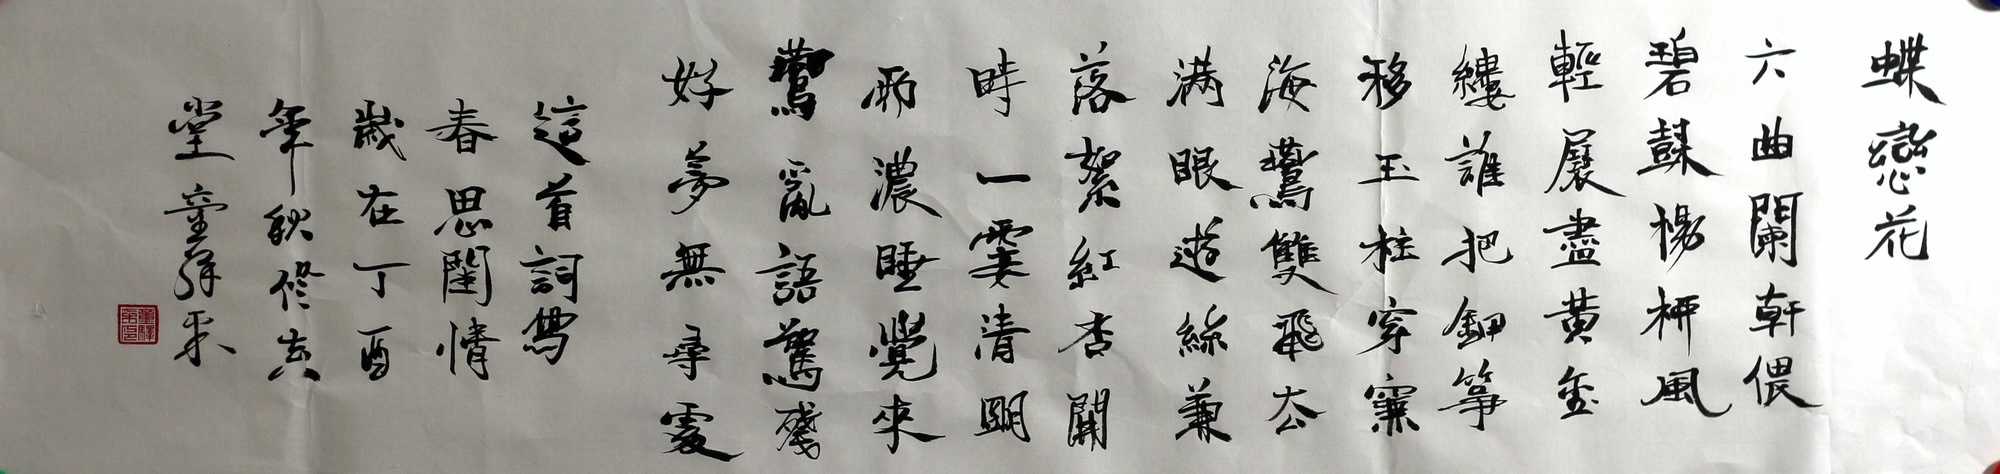 蝶戀花
六曲闌軒偎
碧樹楊柳風
輕展盡黃金
縷誰把鈿箏
移玉柱穿簾
海燕雙飛去
滿眼遊絲兼
落絮紅杏開
時一霎清明
雨濃睡覺來
鶯亂語驚殘
好夢無尋處
這首詞寫
春思閨情
歲在丁酉
年秋修吉
堂童驛平